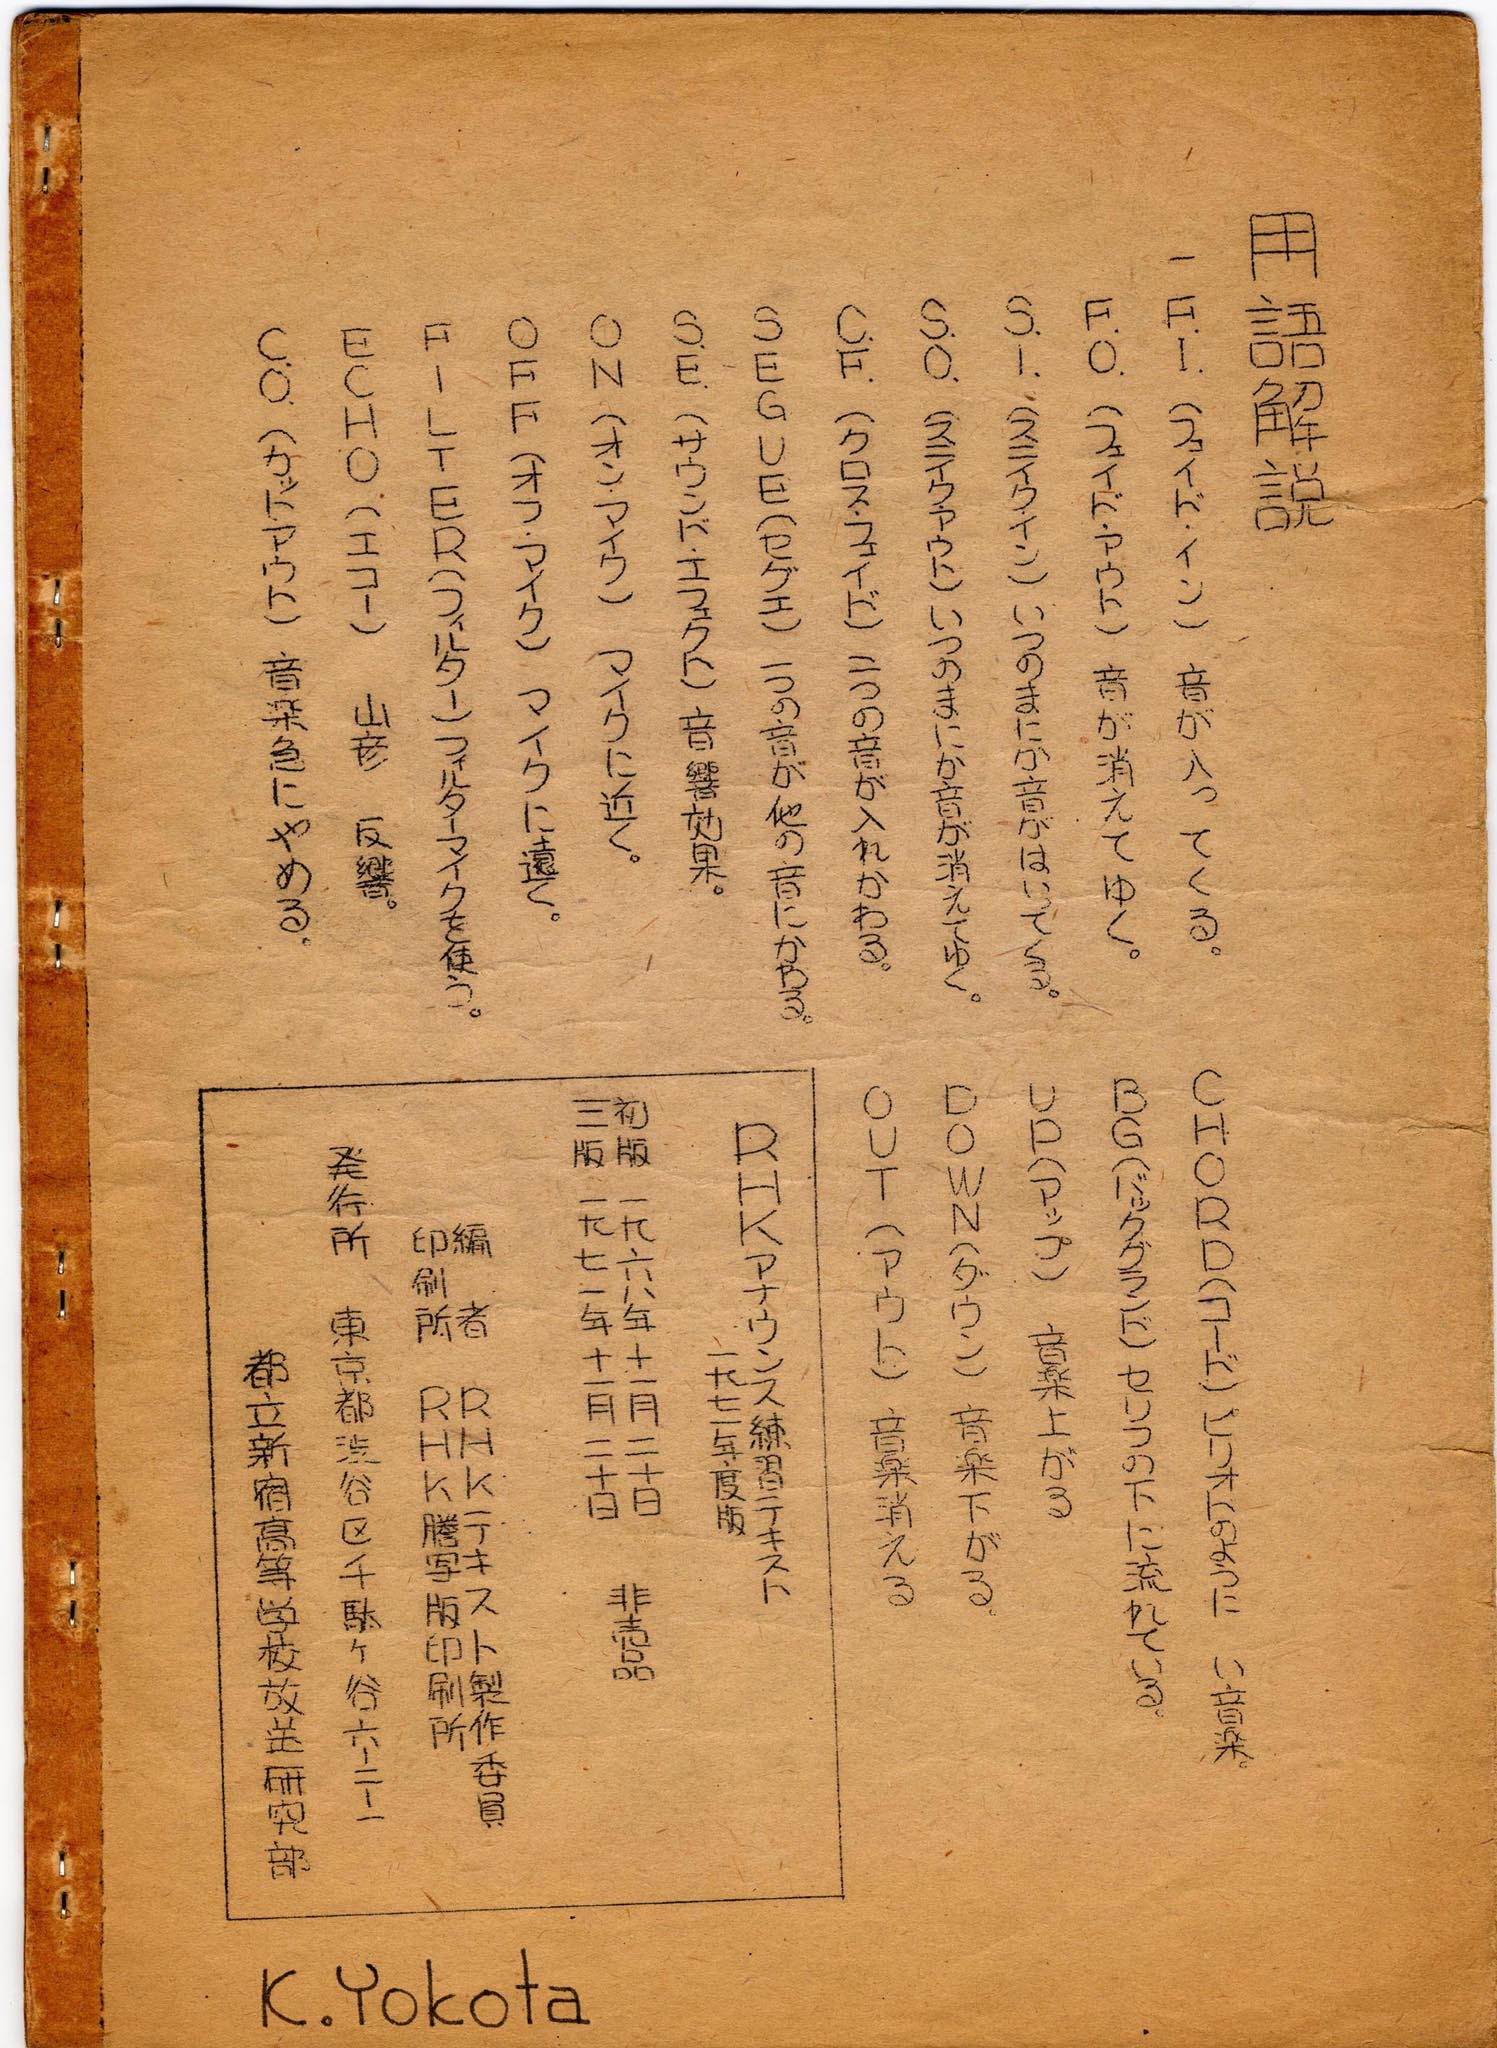 用語解説
F.I.(フェイド・イン) 音が入ってくる。
F.O.(フェイド・アウト) 音が消えてゆく。
S.I.(スニイク・イン) いつのまにか音がはいってくる。
S.O.(スニイク・アウト) いつのまにか音が消えてゆく。
C.F.(クロス・フェイド) 二つの音が入れかわる。
SEGUE(セグエ) 一つの音が他の音にかわる。
S.E.(サウンド・エフェクト) 音響効果。
ON(オン・マイク) マイクに近く。
OFF(オフ・マイク) マイクに遠く。
FILTER(フィルター) フィルターマイクを使う。
ECHO(エコー) 山彦 反響。
C.O.(カット・アウト) 音楽急にやめる。
CHORD(コード) ピリオドのように い音楽。
BG(バックグランド) セリフの下に流れている。
UP(アップ) 音楽上がる
DOWN(ダウン) 音楽下がる。
OUT(アウト) 音楽消える
RHKアナウンス練習テキスト
一九七一年度版
初版 一九六八年十一月二十日 非売品
三版 一九七一年十一月二十日
編者 RHKテキスト製作委員
印刷所 RHK騰写版印刷所
発行所 東京都渋谷区千駄ヶ谷六ー二ー一
都立新宿高等学校放送研究部
K.Yokota